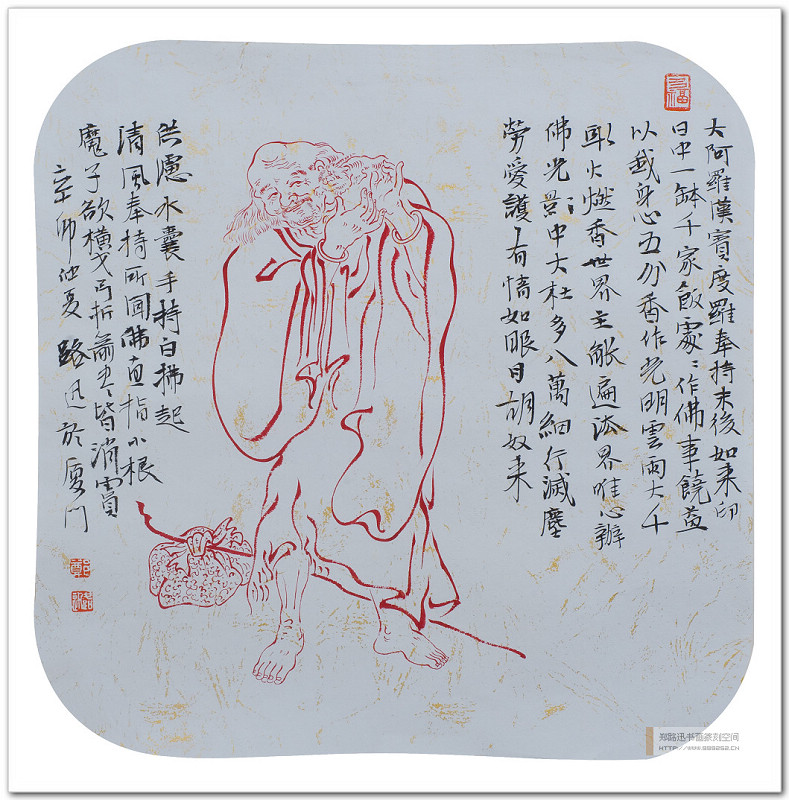 大阿羅漢賓度羅奉持末後如来印
日中一缽千家飯處〻作佛事饒益
以我身心五分香作光明雲雨大千
取火燃香世界主能遍法界唯心辦
佛光影中大杜多八萬細行滅塵
勞愛護一有情如眼目胡奴来
供濾水囊手持白拂起
清風奉持所囙佛直指小根
魔子欲橫戈弓折箭盡皆消實
辛卯仲夏 路迅於廈門
郑路迅书画篆刻空间